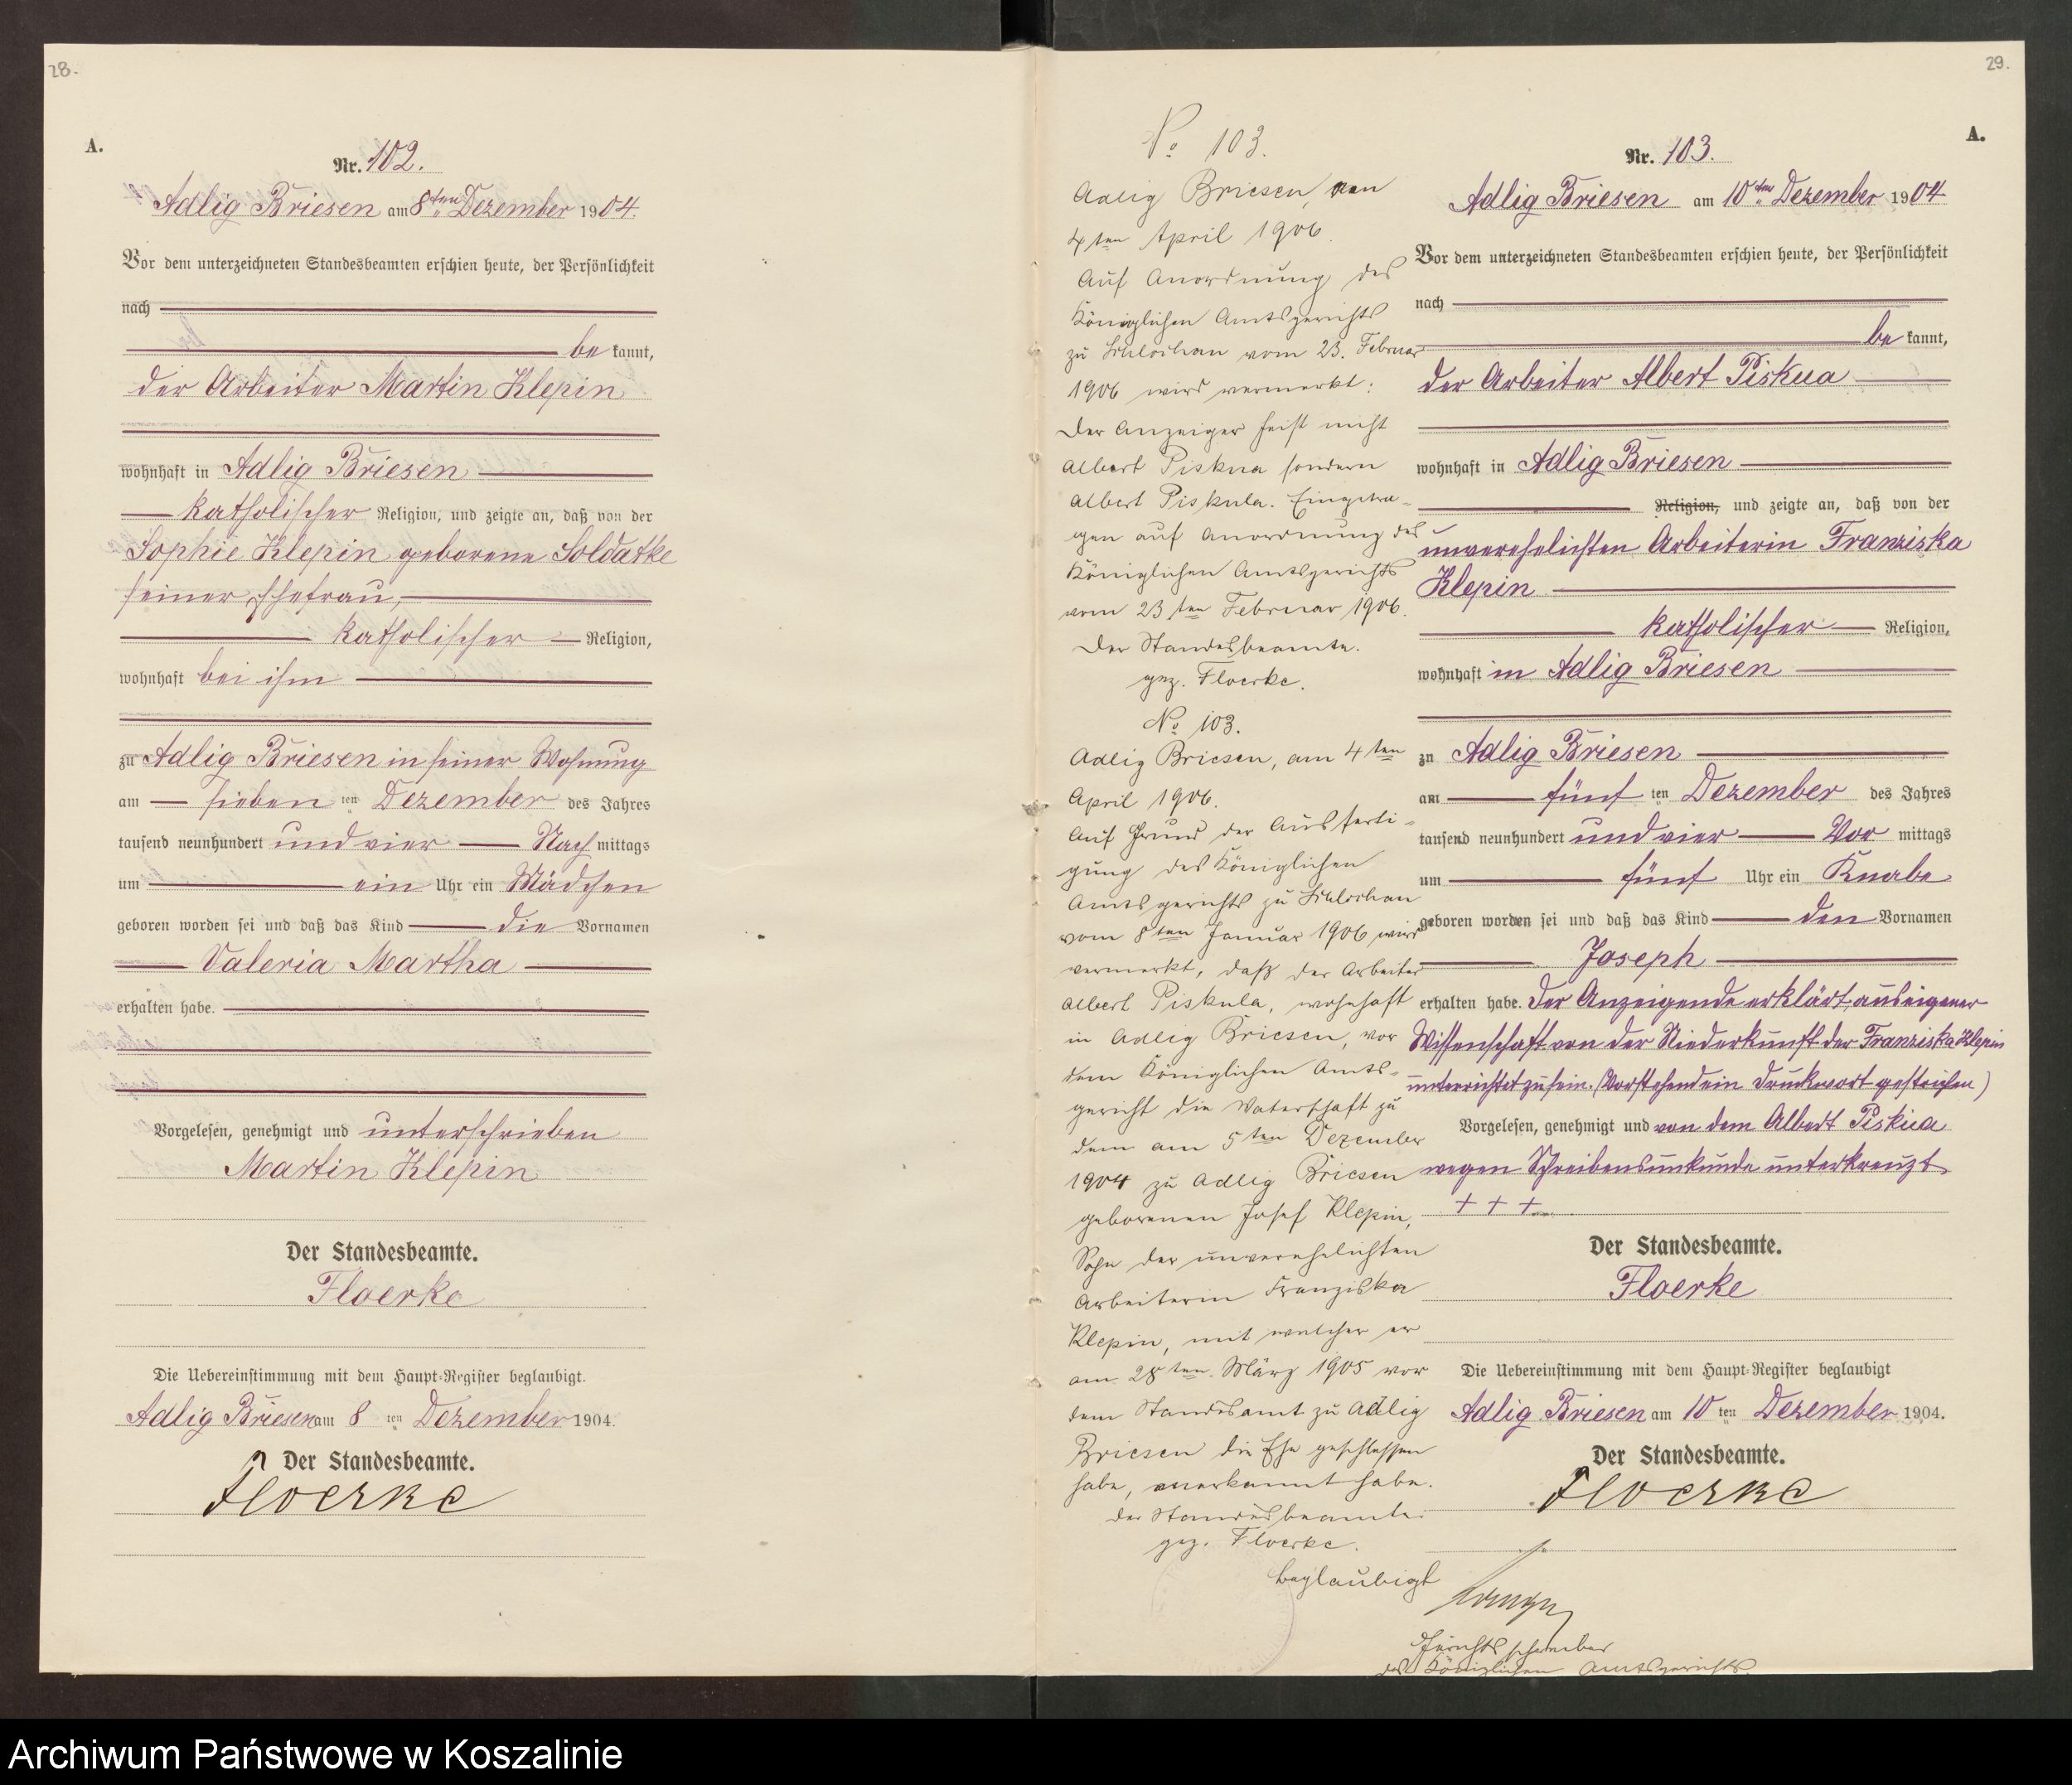 28.
A.
Nr. 102.
Adlig Briesen am 8ten Dezember 1904.
Vor dem unterzeichneten Standesbeamten erschien heute, der Persönlichkeit
nach
be kannt,
der Arbeiter Martin Klepin
wohnhaft in Adlig Briesen
katholischer Religion, und zeigte an, daß von der
Sophie Klepin geborene Soldatke
seiner Ehefrau,
katholischer Religion,
wohnhaft bei ihm
zu Adlig Briesen in seiner Wohnung
am sieben ten Dezember des Jahres
tausend neunhundert und vier Nach mittags
um ein Uhr ein Mädchen
geboren worden sei und daß das Kind die Vornamen
Valeria Martha
erhalten habe.
Vorgelesen, genehmigt und unterschrieben
Martin Klepin
Der Standesbeamte.
Floerke
Die Uebereinstimmung mit dem Haupt-Register beglaubigt.
Adlig Briesen am 8 ten Dezember 1904.
Der Standesbeamte.
Floerke
29.
No 103.
Adlig Briesen, den
4ten April 1906.
Auf Anordnung des
Königlichen Amtsgerichts
zu Schlochau vom 23. Februar
1906 wird vermerkt:
Der Anzeiger heißt nicht
Albert Piskua sondern
Albert Piskula. Eingetra-
gen auf Anordnung des
Königlichen Amtsgerichts
vom 23ten Februar 1906.
Der Standesbeamte.
gez. Floerke.
No 103.
Adlig Briesen, am 4ten
April 1906.
Auf Grund der Ausferti-
gung des Königlichen
Amtsgerichts zu Schlochau
vom 8ten Januar 1906 wird
vermerkt, daß der Arbeiter
Albert Piskula, wohnhaft
in Adlig Briesen, vor
dem Königlichen Amts-
gericht die Vaterschaft zu
dem am 5ten Dezember
1904 zu Adlig Briesen
geborenen Josef Klepin,
Sohn der unverehelichten
Arbeiterin Franziska
Klepin, mit welcher er
am 28ten März 1905 vor
dem Standesamt zu Adlig
Briesen die Ehe geschlossen
habe, anerkannt habe.
Der Standesbeamte.
gez. Floerke.
beglaubigt
Gerichtsschreiber
des Königlichen Amtsgerichts
A.
Nr. 103.
Adlig Briesen am 10ten Dezember 1904
Vor dem unterzeichneten Standesbeamten erschien heute, der Persönlichkeit
nach
be kannt,
der Arbeiter Albert Piskua
wohnhaft in Adlig Briesen
Religion, und zeigte an, daß von der
unverehelichten Arbeiterin Franziska
Klepin
katholischer Religion,
wohnhaft in Adlig Briesen
zu Adlig Briesen
am fünf ten Dezember des Jahres
tausend neunhundert und vier Vor mittags
um fünf Uhr ein Knabe
geboren worden sei und daß das Kind den Vornamen
Joseph
erhalten habe. Der Anzeigende erklärt, aus eigener
Wissenschaft von der Niederkunft der Franziska Klepin
unterrichtet zu sein. (Vorstehend ein Druckwort gestrichen)
Vorgelesen, genehmigt und von dem Albert Piskua
wegen Schreibensunkunde unterkreuzt
+ + +
Der Standesbeamte.
Floerke
Die Uebereinstimmung mit dem Haupt-Register beglaubigt
Adlig Briesen am 10 ten Dezember 1904.
Der Standesbeamte.
Floerke
Archiwum Państwowe w Koszalinie